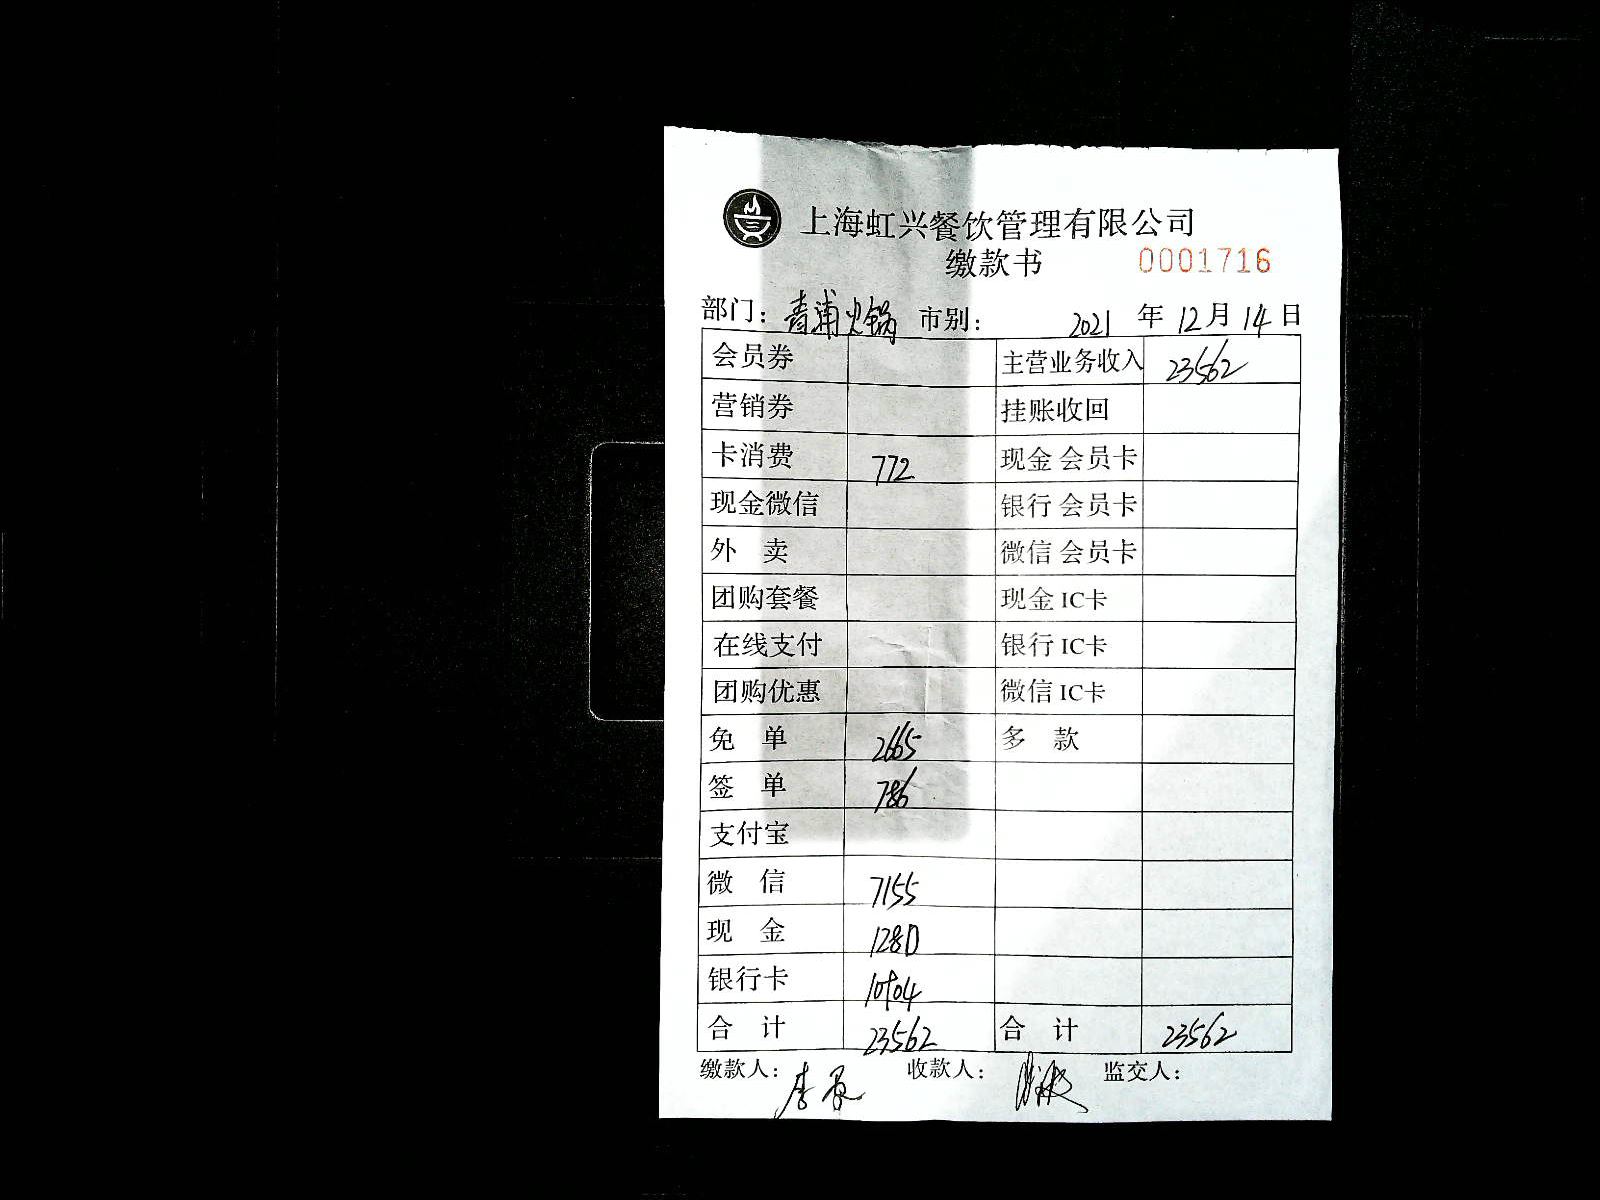 上海虹兴餐饮管理有限公司
缴款书 0001716
部门: 青浦火锅 市别: 2021 年 12 月 14 日
会员券 主营业务收入 23562
营销券 挂账收回
卡消费 772 现金 会员卡
现金微信 银行 会员卡
外 卖 微信 会员卡
团购套餐 现金 IC卡
在线支付 银行 IC卡
团购优惠 微信 IC卡
免 单 2665 多 款
签 单 786
支付宝
微 信 7155
现 金 1280
银行卡 10904
合 计 23562 合 计 23562
缴款人: 收款人: 监交人: